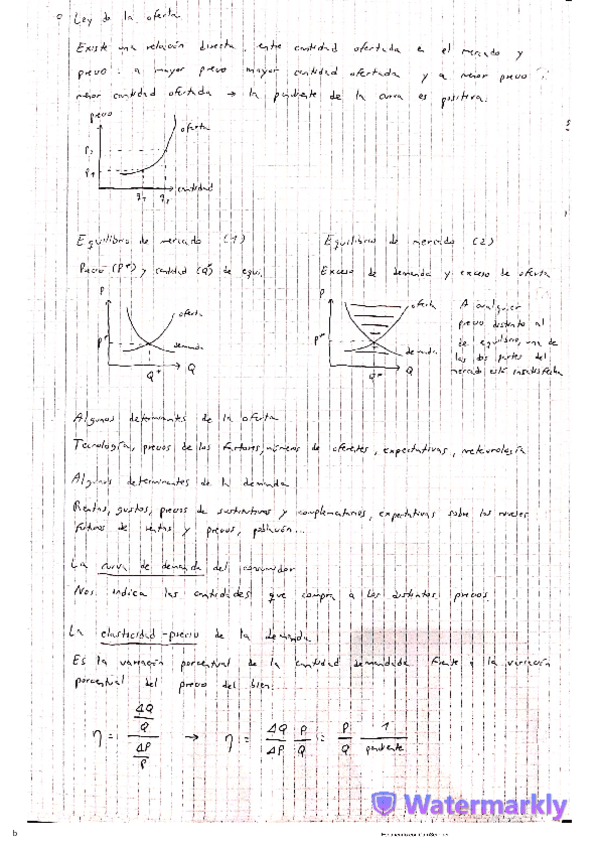 o Ley de la oferta
Existe una relación directa entre cantidad ofertada en el mercado y
precio: a mayor precio mayor cantidad ofertada y a menor precio
menor cantidad ofertada → la pendiente de la curva es positiva.
precio
oferta
P2
P1
cantidad
q1 q2
Equilibrio de mercado (1)
Precio (P*) y cantidad (Q*) de equi.
P
oferta
P*
demanda
Q* Q
Equilibrio de mercado (2)
Exceso de demanda y exceso de oferta
P
oferta
P*
demanda
Q* Q
A cualquier
precio distinto al
de equilibrio, una de
las dos partes del
mercado está insatisfecha
Algunos determinantes de la oferta
Tecnología, precios de los factores, números de oferentes, expectativas, meteorología
Algunos determinantes de la demanda
Rentas, gustos, precios de sustitutivos y complementarios, expectativas sobre los niveles
futuros de rentas y precios, población...
La curva de demanda del consumidor
Nos indica las cantidades que compra a los distintos precios.
La elasticidad-precio de la demanda
Es la variación porcentual de la cantidad demandada frente a la variación
porcentual del precio del bien:
η = (ΔQ/Q)/(ΔP/P) → η = ΔQ/ΔP P/Q = P/Q 1/pendiente
Watermarkly
6